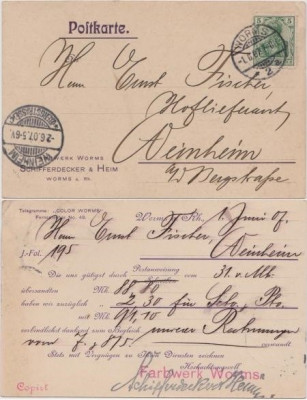 Postkarte.
WORMS
2
Herrn Ernst Fischer
Hoflieferant
Weinheim
a/d Bergstraße
WEINHEIM
-2.6.07.5-6V.
WERK WORMS
SCHIFFERDECKER & HEIM
WORMS a. Rh.
Telegramme: „COLOR WORMS“
Worms a. Rh., 1. Juni 07.
Herrn Ernst Fischer, Weinheim
J.-Fol. 195
Die uns gütigst durch Postanweisung vom 31. v. Mts
übersandten Mk.
haben wir zuzüglich 2,30 für Scto,
mit Mk. 91,10
verbindlichst dankend zum Ausgleich unserer Rechnungen
vom 7. 8/5 verwandt
Stets mit Vergnügen zu Ihren Diensten zeichnen
Hochachtungsvoll
Farbwerk Worms
Schifferdecker & Heim
Copirt